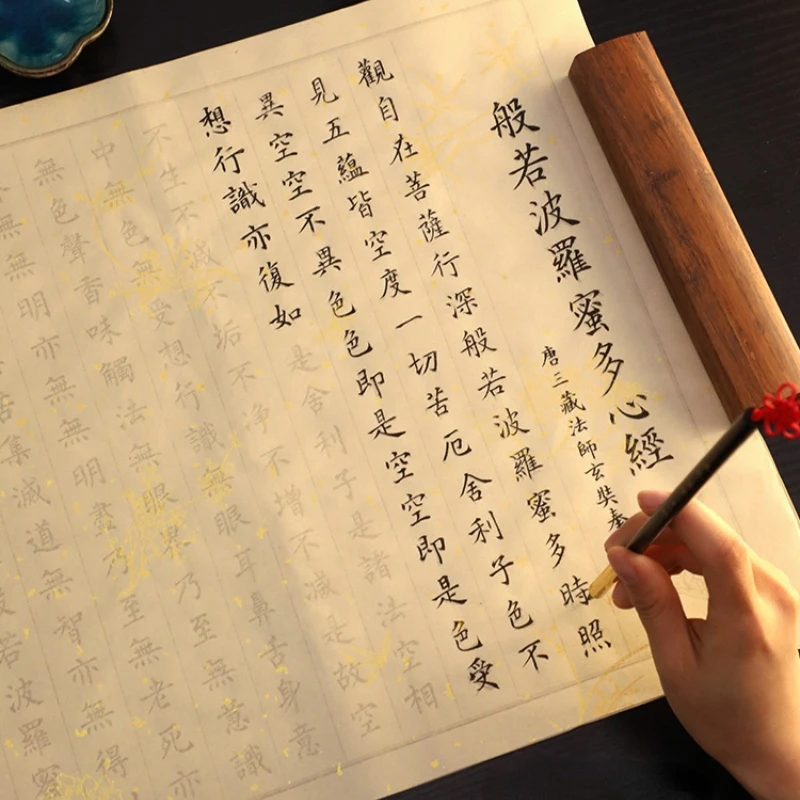 般若波羅蜜多心經
唐三藏法師玄奘奉
觀自在菩薩行深般若波羅蜜多時照
見五蘊皆空度一切苦厄舍利子色不
異空空不異色色即是空空即是色受
想行識亦復如是舍利子是諸法空相
不生不滅不垢不净不增不減是故空
中無色無受想行識無眼耳鼻舌身意
無色聲香味觸法無眼界乃至無意識
無無明亦無無明盡乃至無老死亦
苦集滅道無智亦無得
若波羅蜜